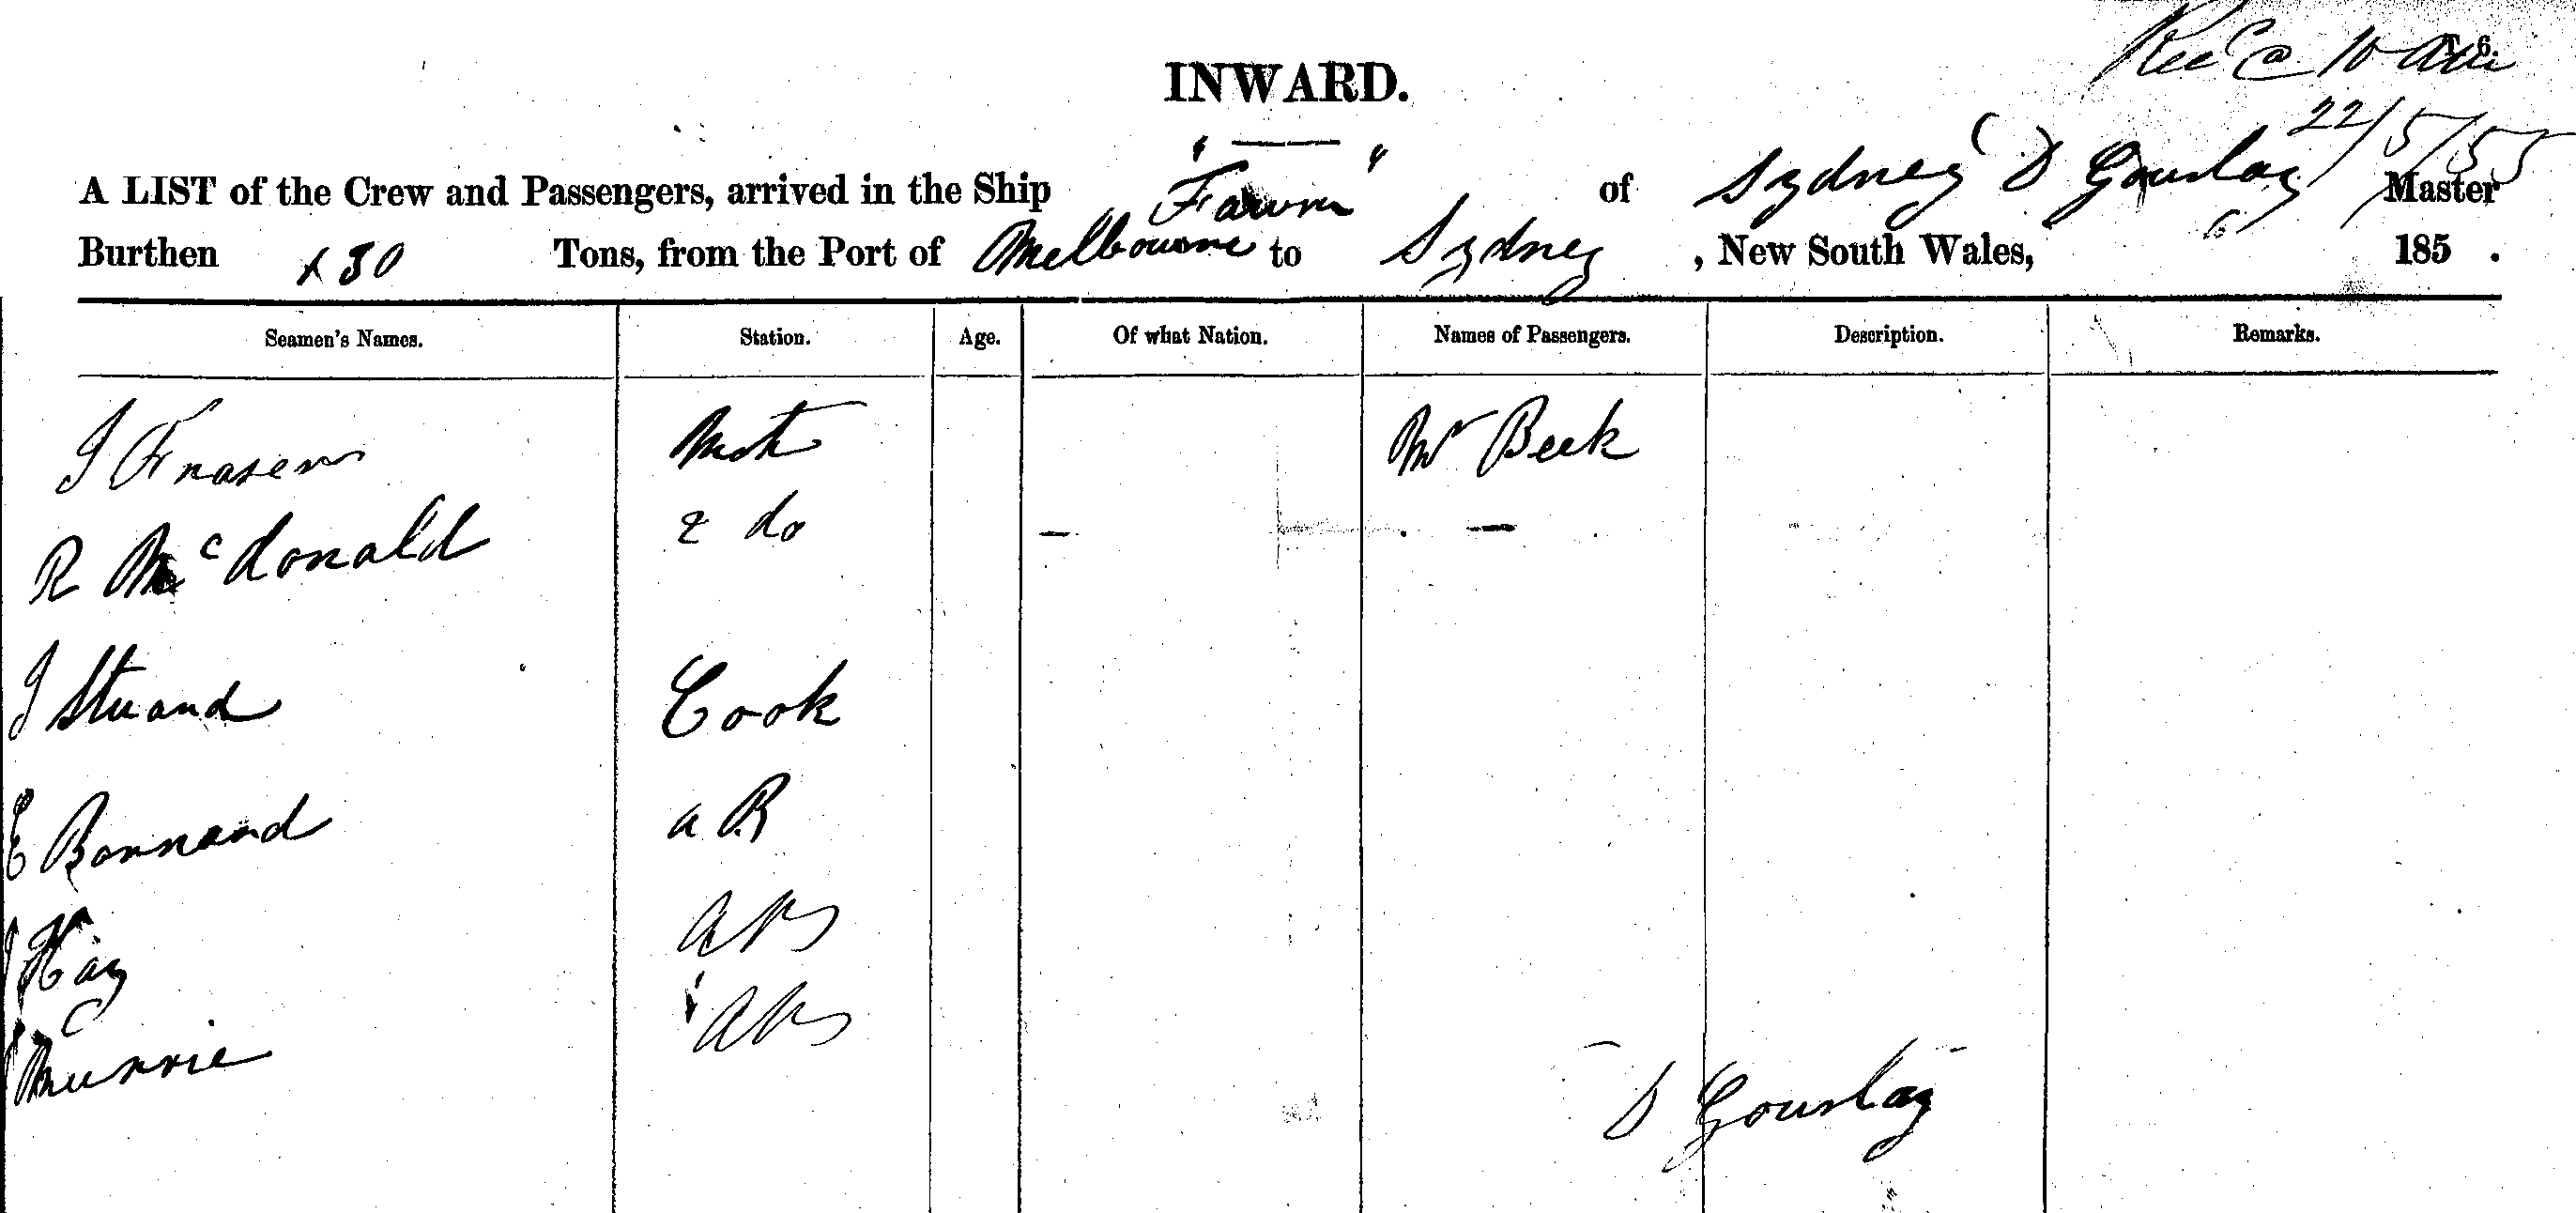 Rec'd @ 10 am
T 6.
INWARD.
22/5/55
A LIST of the Crew and Passengers, arrived in the Ship "Fawn" of Sydney D Gourlay Master
Burthen 130 Tons, from the Port of Melbourne to Sydney , New South Wales, 185 .
Seamen's Names. Station. Age. Of what Nation. Names of Passengers. Description. Remarks.
J Fraser Mate Mr Beck
R McDonald 2 do - -
J Stuard Cook
E Bonnard A B
J Hay A B
J Murrie A B
D Gourlay